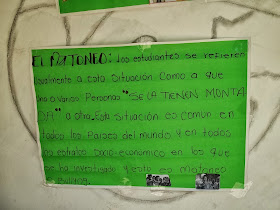 El MATONEO: Los estudiantes se refieren
usualmente a esta situación como a que
una o varias Personas "SE LA TIENEN MONTA
DA" a otra. Esta situación es común en
todos los Países del mundo y en todos
los estratos Socio-económico en los que
se ha investigado y esto es matoneo
o Bullying.